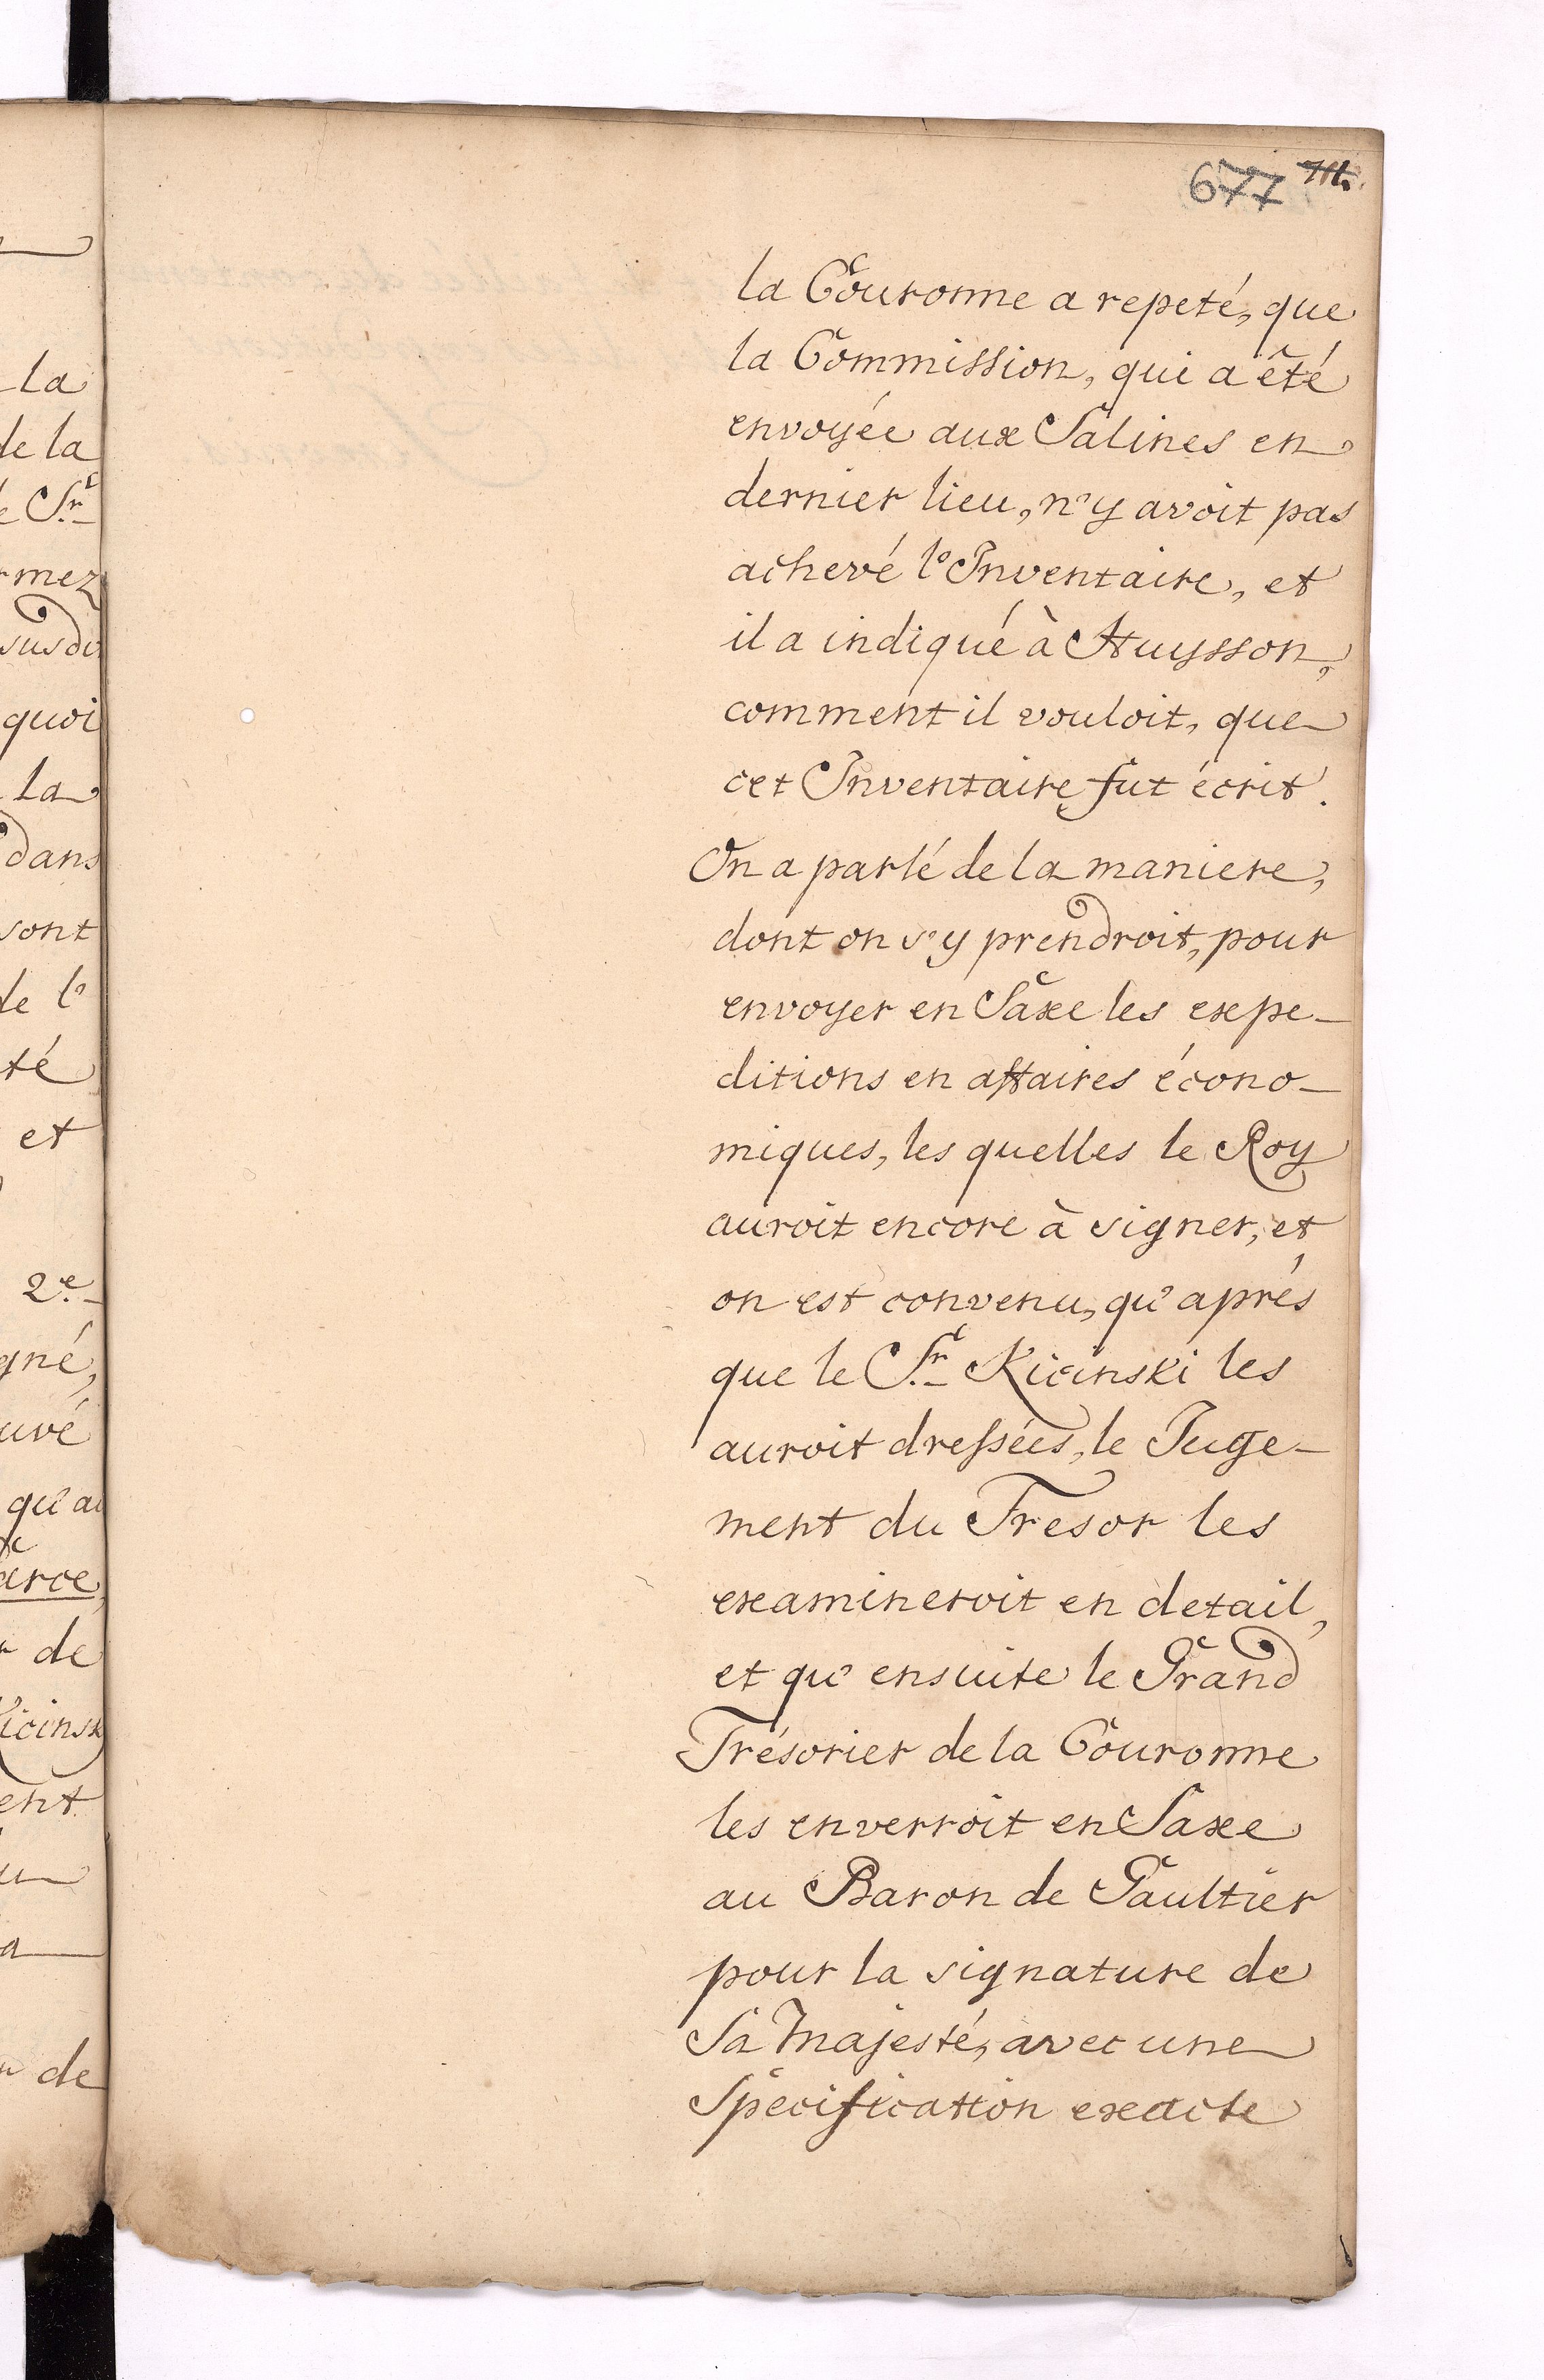 677
la Couronne a repeté, que
la Commission, qui a été
envoyée aux Salines en
dernier lieu, n'y avoit pas
achevé l'Inventaire, et
il a indiqué à Huysson,
comment il vouloit, que
cet Inventaire fut écrit.
On a parlé de la maniere,
dont on s'y prendroit, pour
envoyer en Saxe les expe-
ditions en affaires écono-
miques, les quelles le Roy
auroit encore à signer, et
on est convenu, qu'aprés
que le Sr. Kicinski les
auroit dressées, le Juge-
ment du Tresor les
examineroit en detail,
et qu'ensuite le Grand
Trésorier de la Couronne
les enverroit en Saxe
au Baron de Gaultier
pour la signature de
Sa Majesté, avec une
Specification exacte
la
de la
Sr.
mez
susdi
quoi
la
dans
sont
de l'
té
et
2e.
gné,
uvé
qu'au
arce,
de
icinsk
ent
de